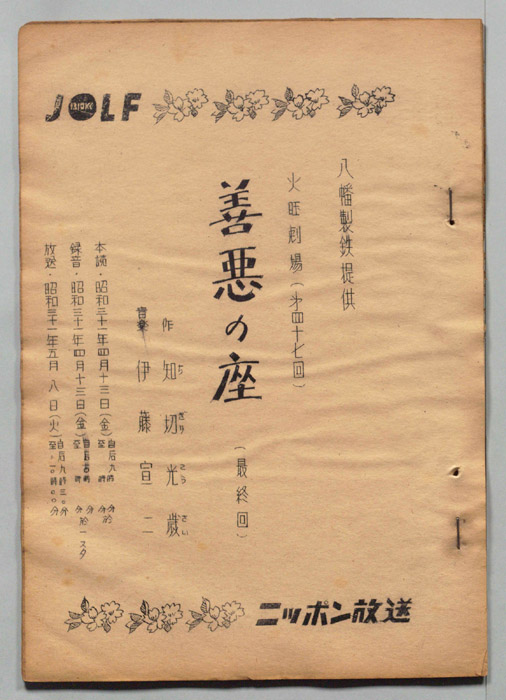 JOLF
八幡製鉄提供
火旺劇場（才四十七回）
善悪の座
（最終回）
作 知切光歳
ちぎりこうさい
音楽 伊藤宣二
本読・昭和三十一年四月十三日（金）
録音・昭和三十一年四月十三日（金）
放送・昭和三十一年五月八日（火）自后九時三〇分至一〇時〇〇分
ニッポン放送